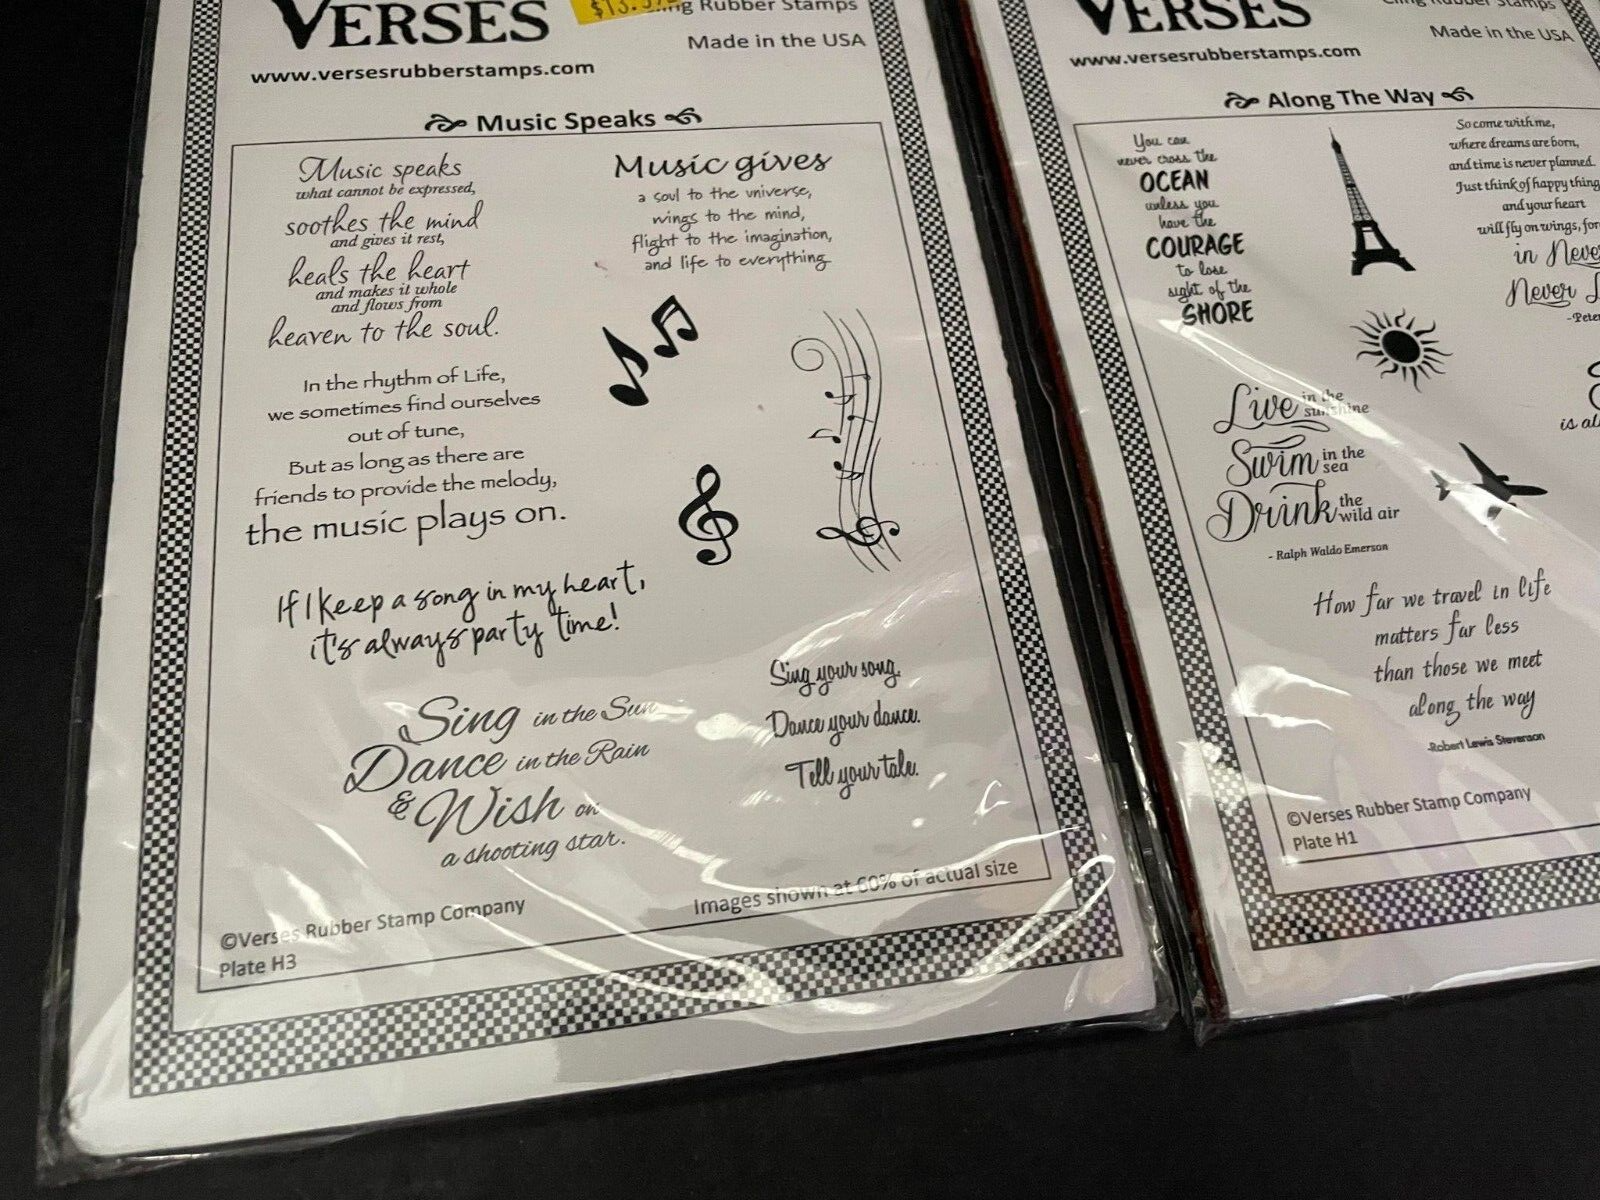 VERSES
Rubber Stamps
Made in the USA
www.versesrubberstamps.com
Music Speaks
Music speaks
what cannot be expressed,
soothes the mind
and gives it rest,
heals the heart
and makes it whole
and flows from
heaven to the soul.
Music gives
a soul to the universe,
wings to the mind,
flight to the imagination,
and life to everything
In the rhythm of Life,
we sometimes find ourselves
out of tune,
But as long as there are
friends to provide the melody,
the music plays on.
If I keep a song in my heart,
it's always party time!
Sing in the Sun
Dance in the Rain
& Wish on
a shooting star.
Sing your song.
Dance your dance.
Tell your tale.
Images shown at 60% of actual size
©Verses Rubber Stamp Company
Plate H3
VERSES
Cling Rubber Stamps
Made in the USA
www.versesrubberstamps.com
Along The Way
You can
never cross the
OCEAN
unless you
have the
COURAGE
to lose
sight of the
SHORE
So come with me,
where dreams are born,
and time is never planned.
Just think of happy thing
and your heart
will fly on wings, for
in Neve
Never L
-Peter
Live in the sunshine
Swim in the sea
Drink the wild air
- Ralph Waldo Emerson
is al
How far we travel in life
matters far less
than those we meet
along the way
-Robert Lewis Stevenson
©Verses Rubber Stamp Company
Plate H1